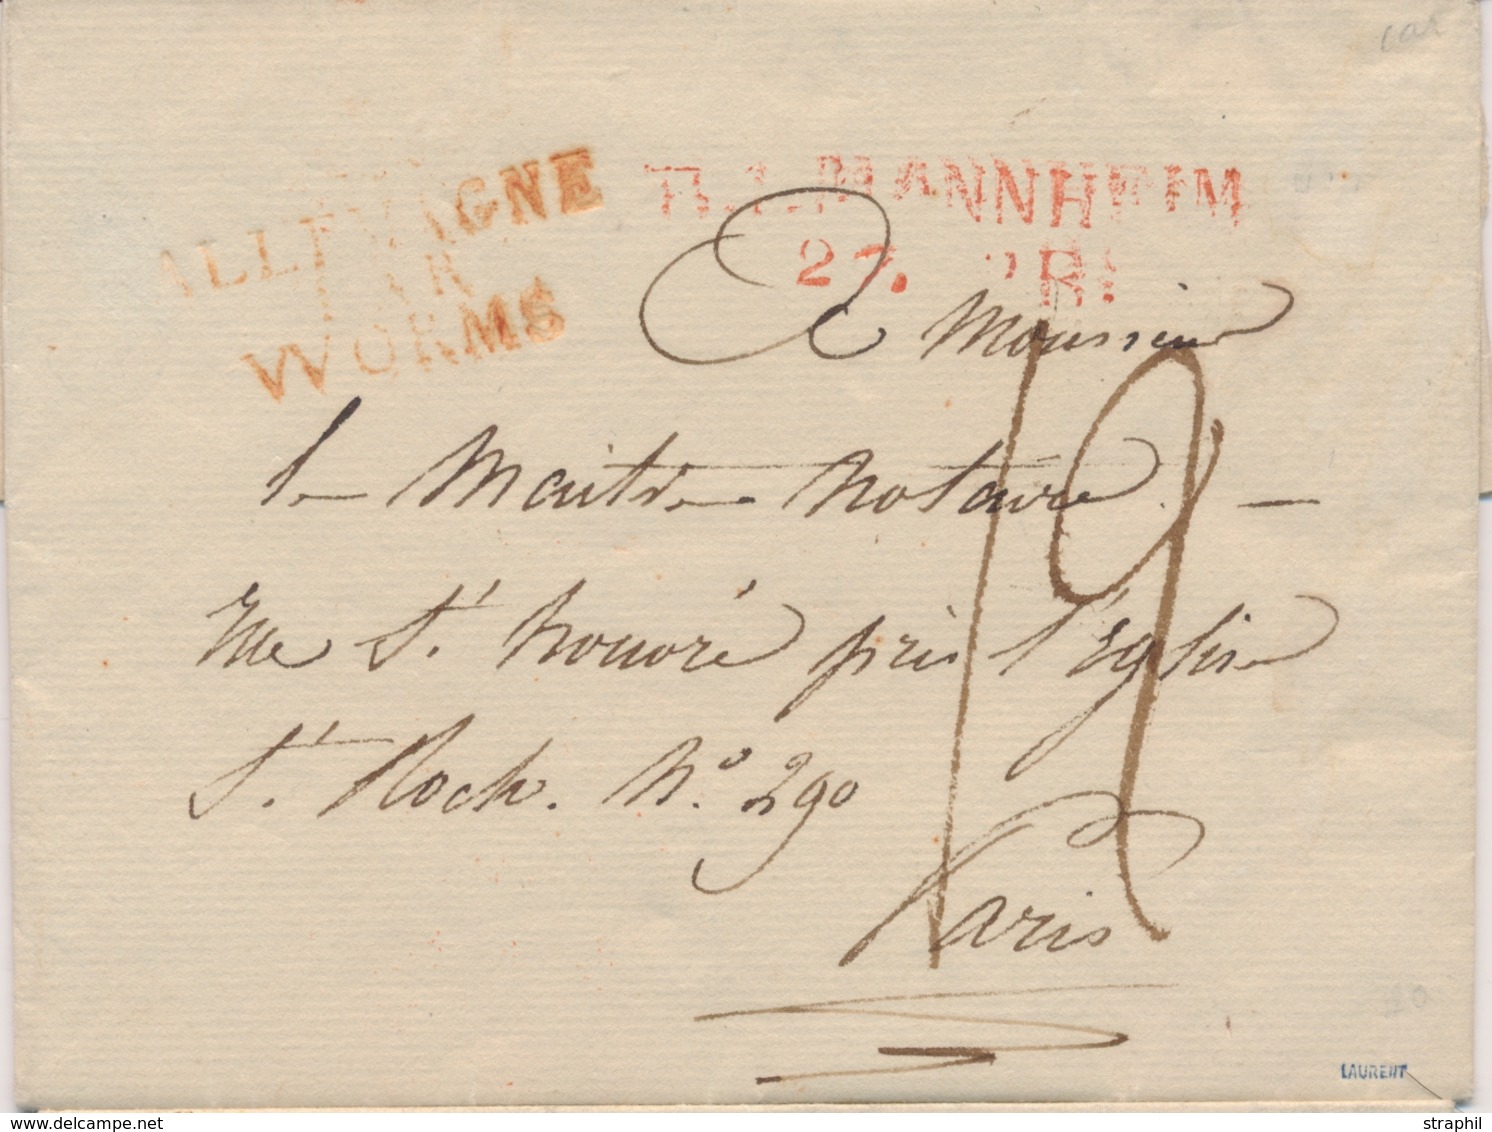 ALLEMAGNE
PAR
WORMS
R.1. MANNHEIM
27.
A Monsieur
le Maitre Notaire
19
rue St. honoré près l'Eglise
St. Roch. No. 290
Paris
LAURENT
straphil